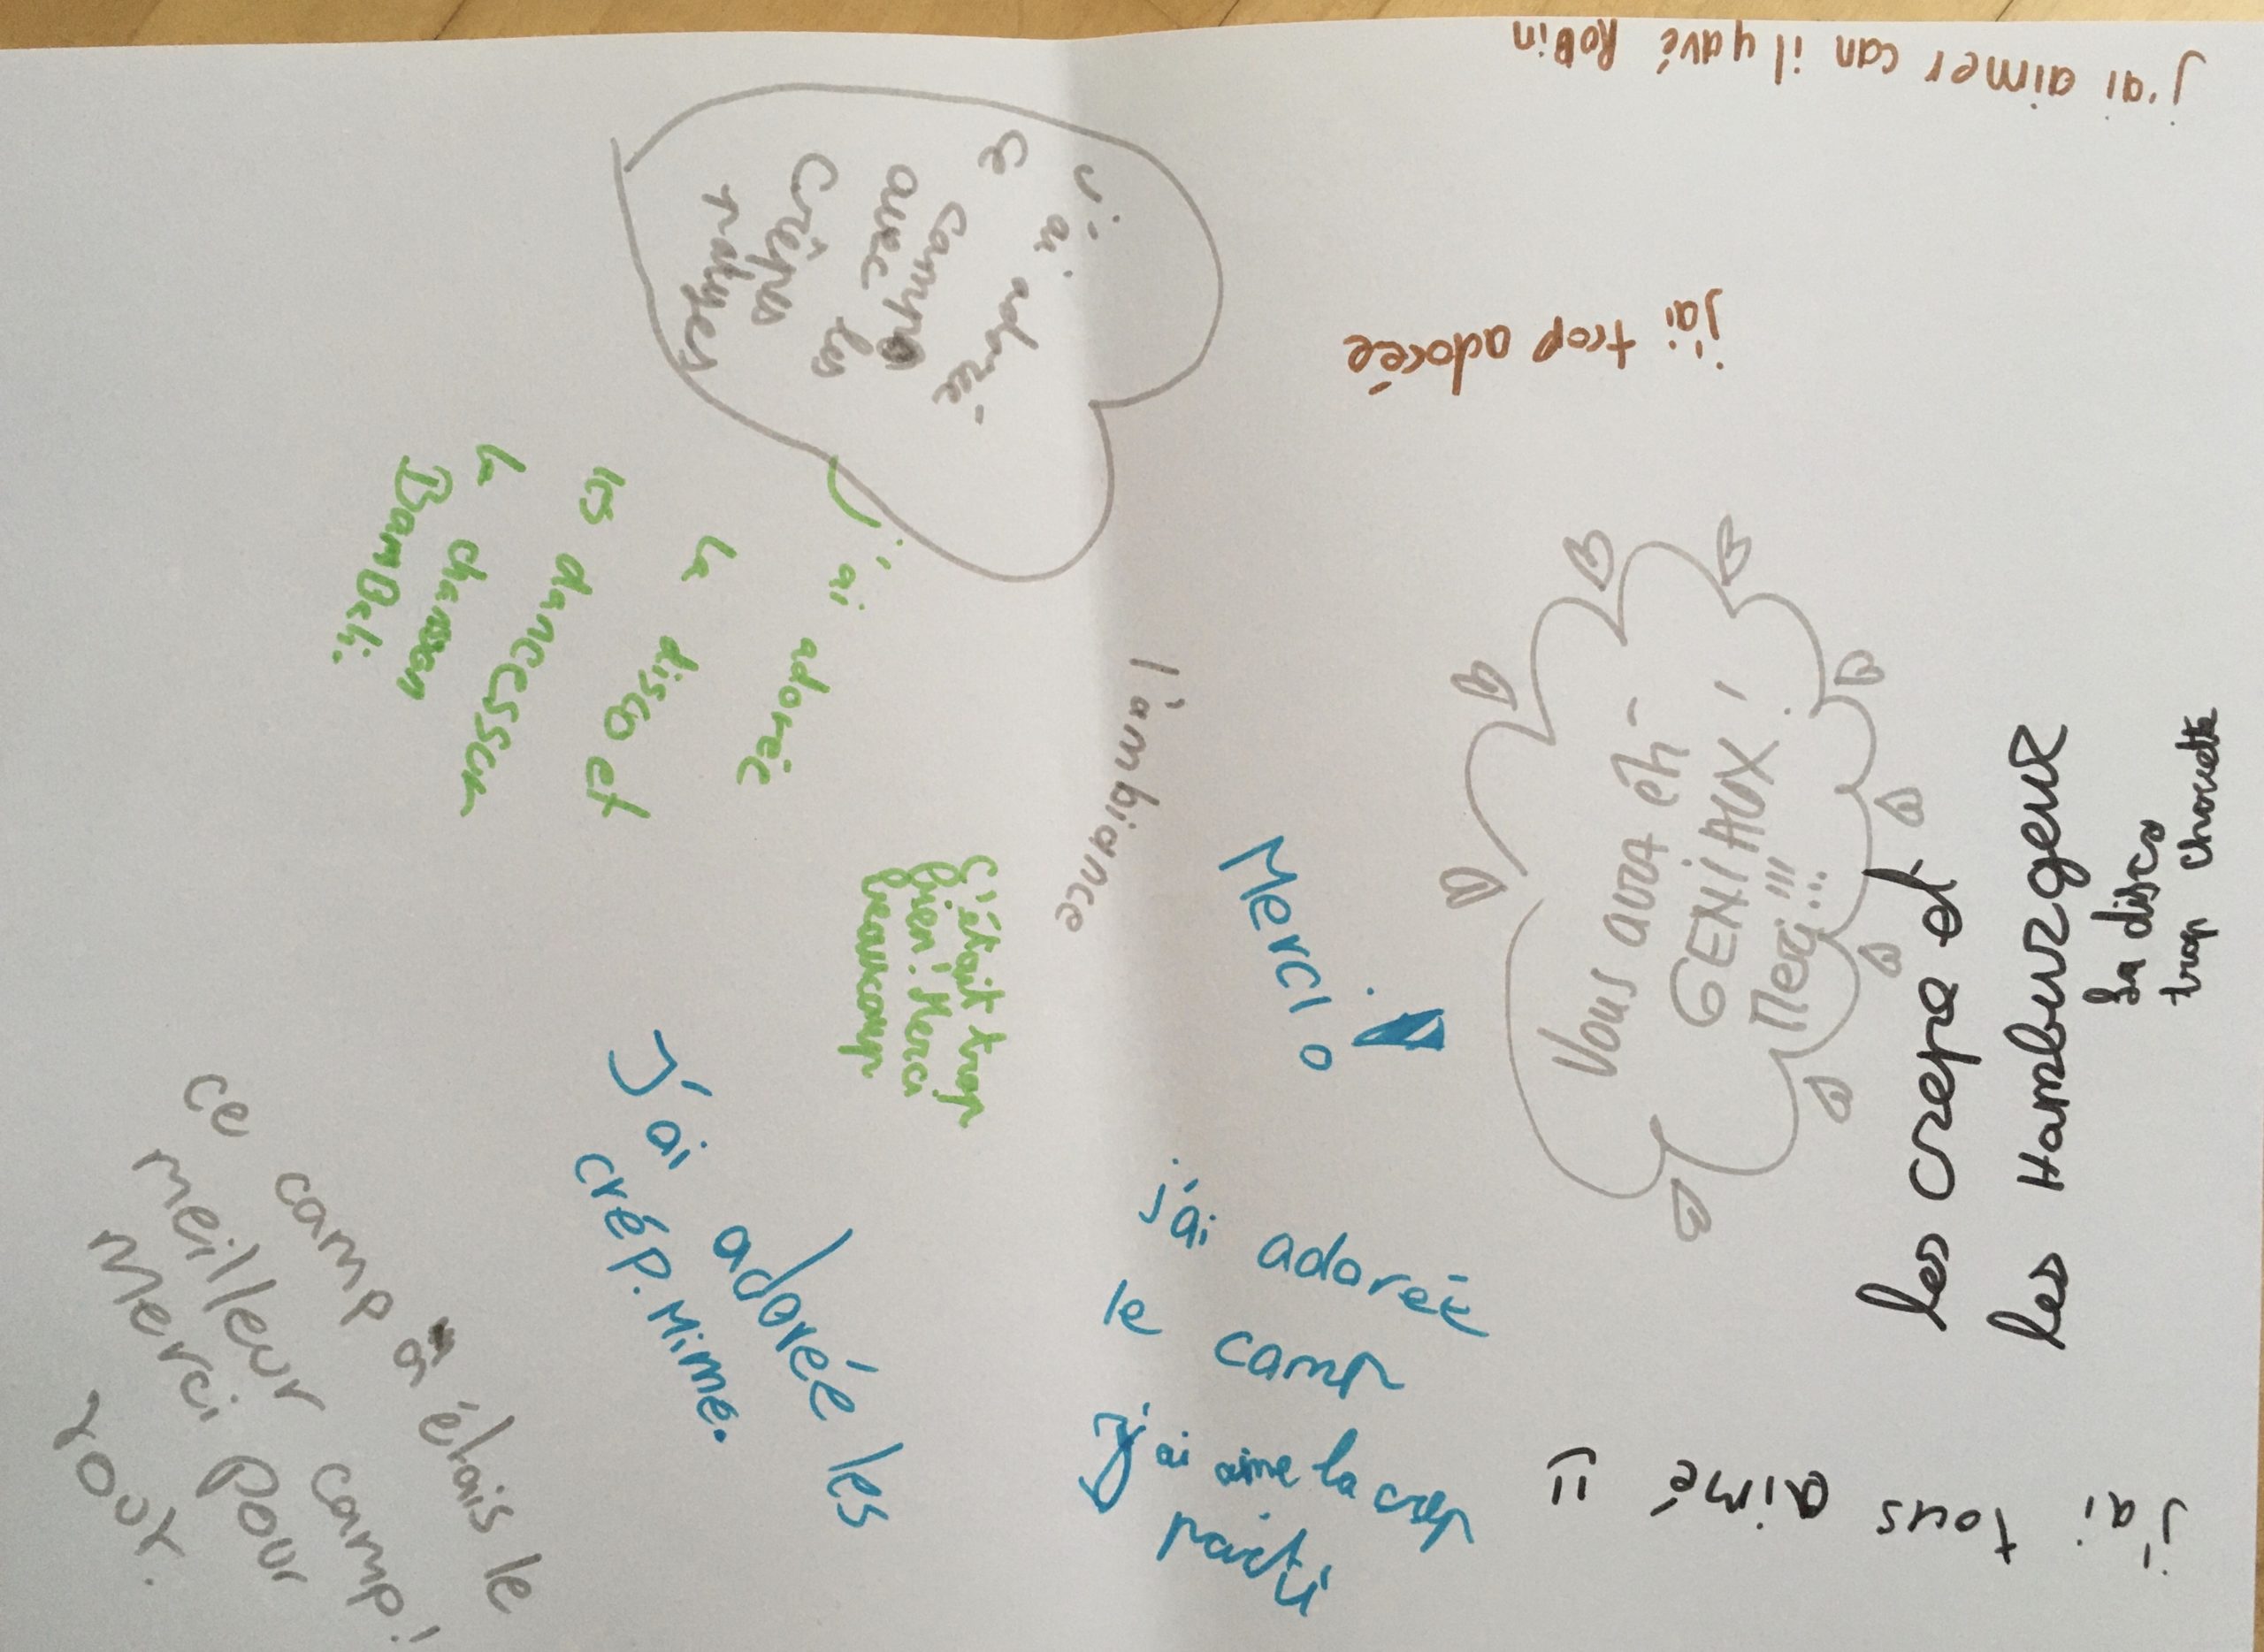 j'ai aimer can il yavé Robin
j'ai trop adorée
j'ai adoré
ce camp
avec les
crêpes
j'ai adorée
la disco et
les dancesses
la chanson
l'ambiance
c'était trop
bien! Merci
beaucoup
Merci
Vous avez été
GENIAUX!
Merci!!!
les crepe et
les Hamburzgeur
La disco
trop chouette
J'ai adorée les
crép. Mime.
j'ai adorée
le camp
J'ai aime la crep
parti
j'ai tous aimé
ce camp a étais le
meilleur camp!
Merci pour
tout.